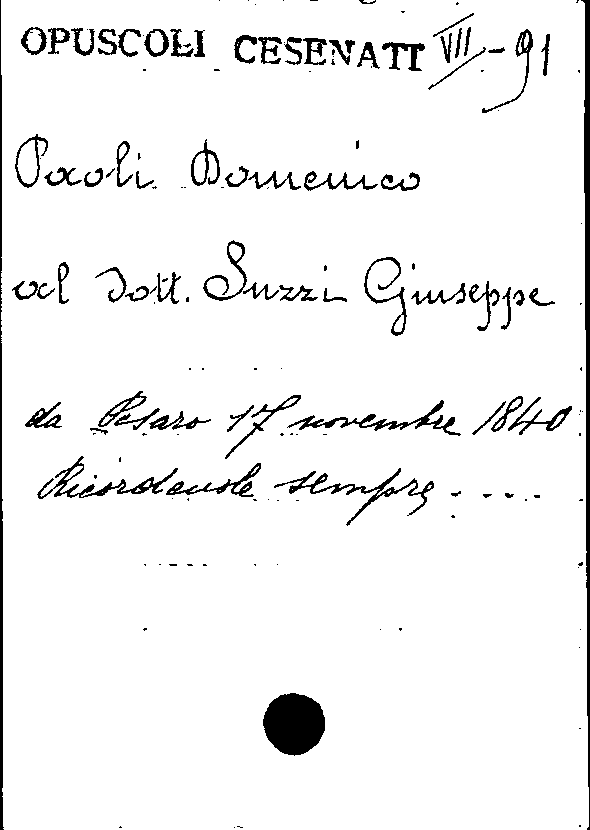 OPUSCOLI CESENATI VII-91
Paoli Domenico
al dott. Suzzi Giuseppe
da Pesaro 17 novembre 1840
Ricordevole sempre.....